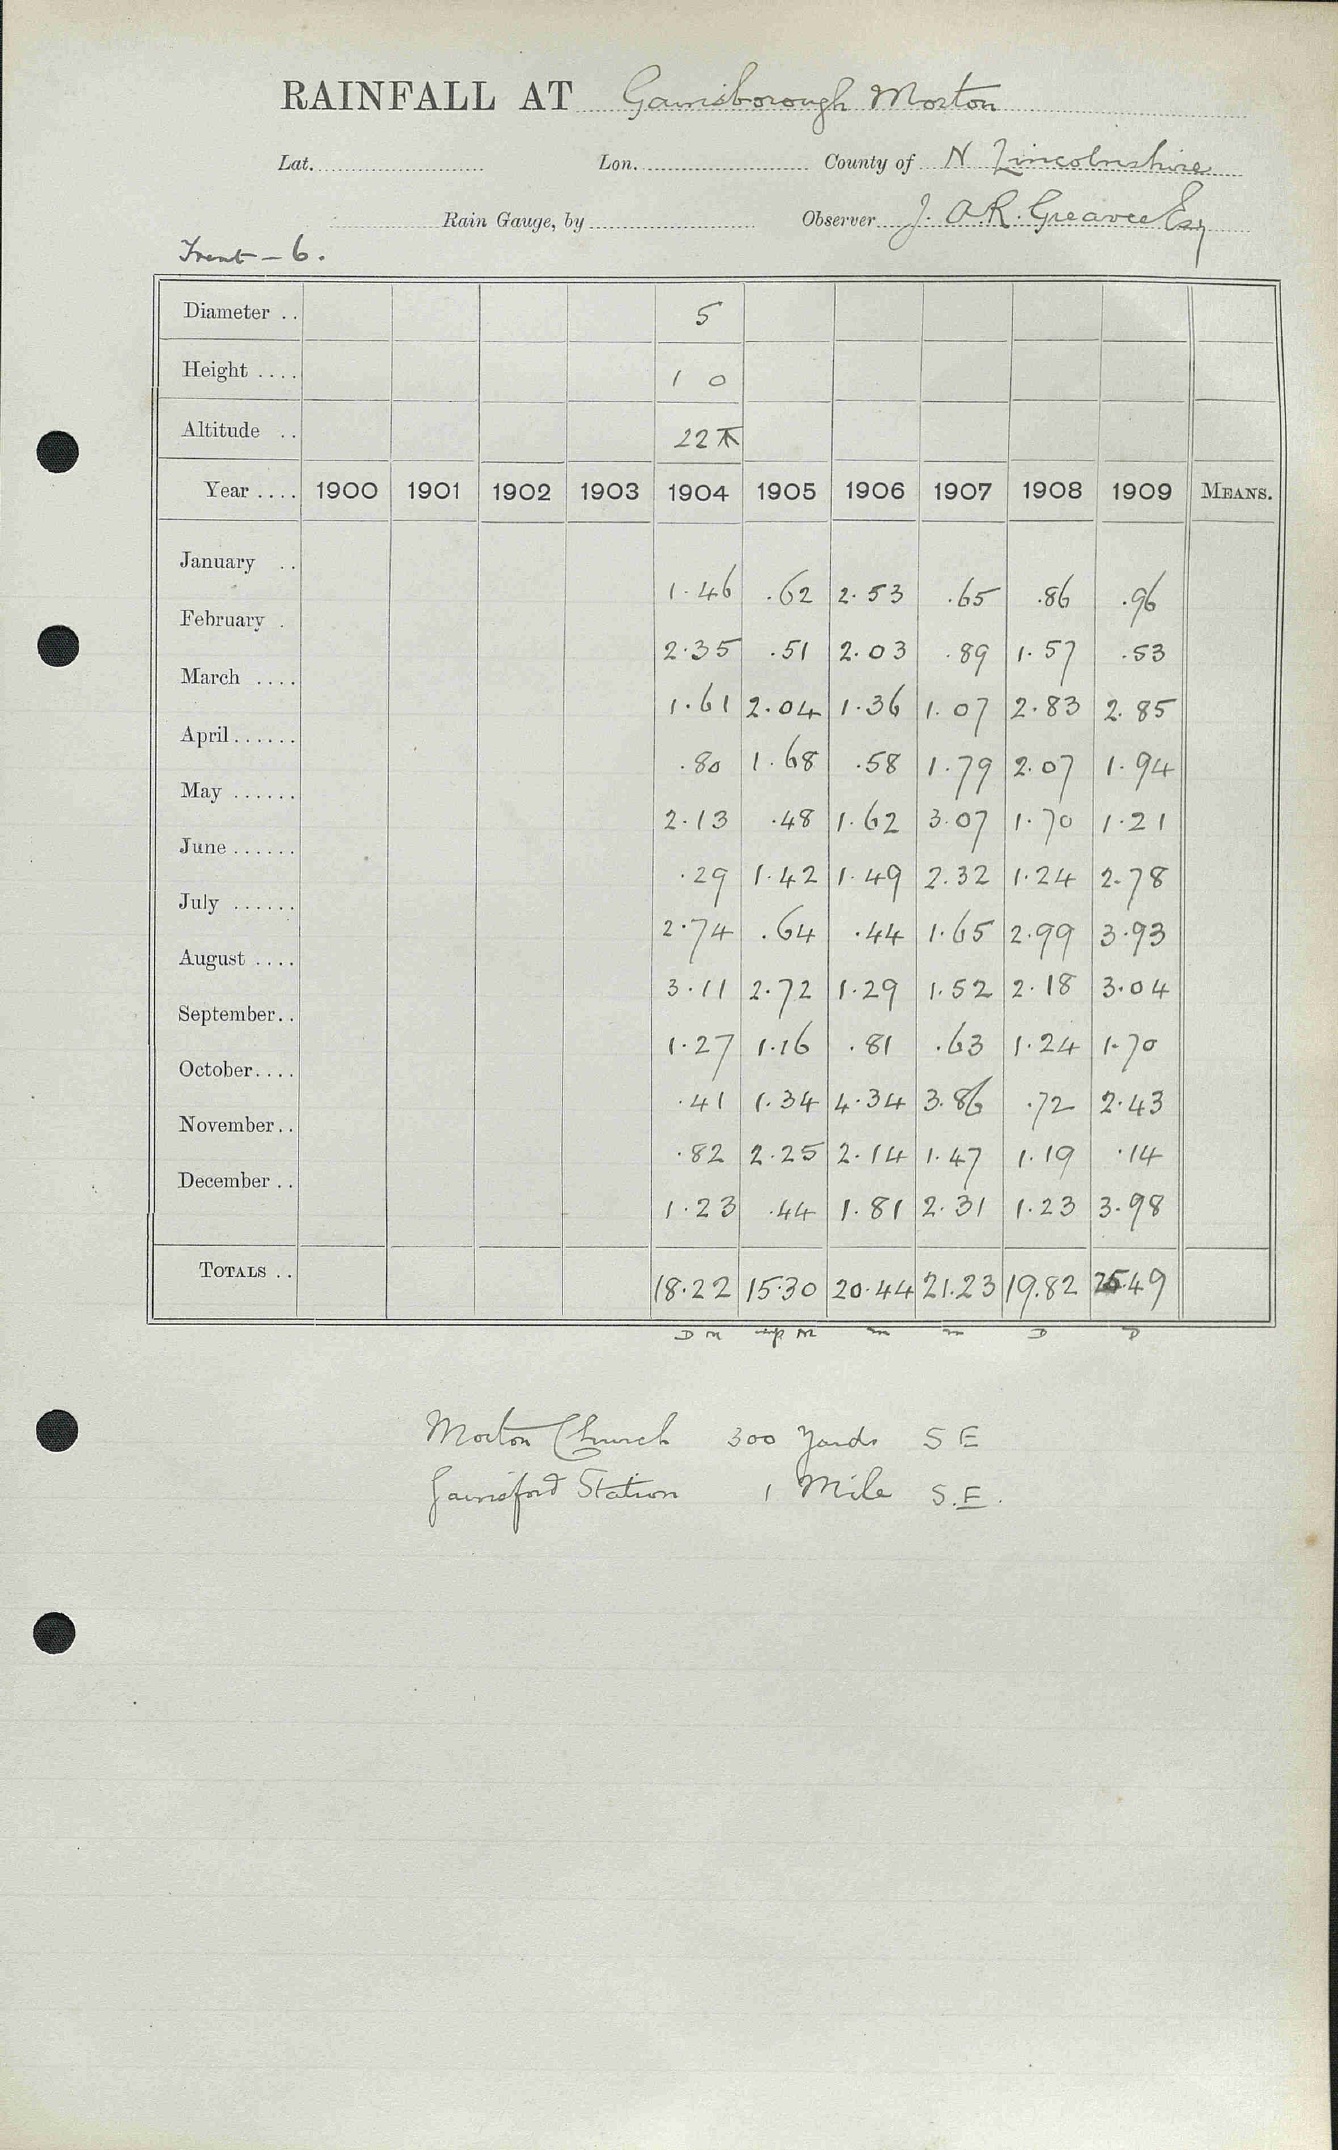 RAINFALL AT Gainsborough Morton
Lat. Lon. County of N Lincolnshire
Rain Gauge, by Observer J. A.R. Greaves Esq
Trent - 6.
Diameter .. 5
Height .... 1 0
Altitude .. 22
Year .... 1900 1901 1902 1903 1904 1905 1906 1907 1908 1909 MEANS.
January .. 1.46 .62 2.53 .65 .86 .96
February . 2.35 .51 2.03 .89 1.57 .53
March .... 1.61 2.04 1.36 1.07 2.83 2.85
April...... .80 1.68 .58 1.79 2.07 1.94
May ...... 2.13 .48 1.62 3.07 1.70 1.21
June ...... .29 1.42 1.49 2.32 1.24 2.78
July ...... 2.74 .64 .44 1.65 2.99 3.93
August .... 3.11 2.72 1.29 1.52 2.18 3.04
September.. 1.27 1.16 .81 .63 1.24 1.70
October.... .41 1.34 4.34 3.86 .72 2.43
November.. .82 2.25 2.14 1.47 1.19 .14
December .. 1.23 .44 1.81 2.31 1.23 3.98
TOTALS .. 18.22 15.30 20.44 21.23 19.82 25.49
D m m m D D
Morton Church 300 Yards S E
Gainsford Station 1 Mile S.E.